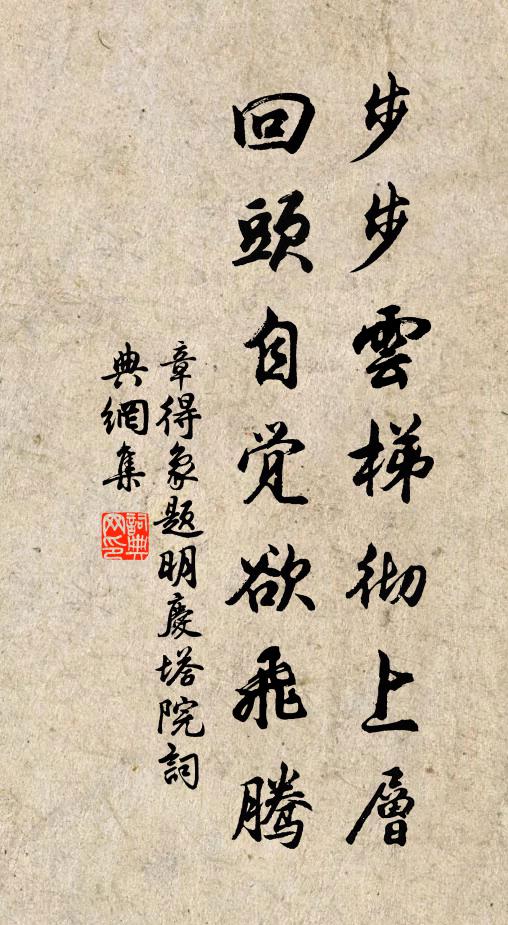 步步雲梯彻上層
回頭自覚欲飛騰
章得象題明慶塔院詞
典網集
詞典网印